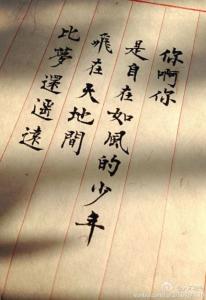 你啊你
是自在如風的少年
飛在天地間
比夢還遥遠